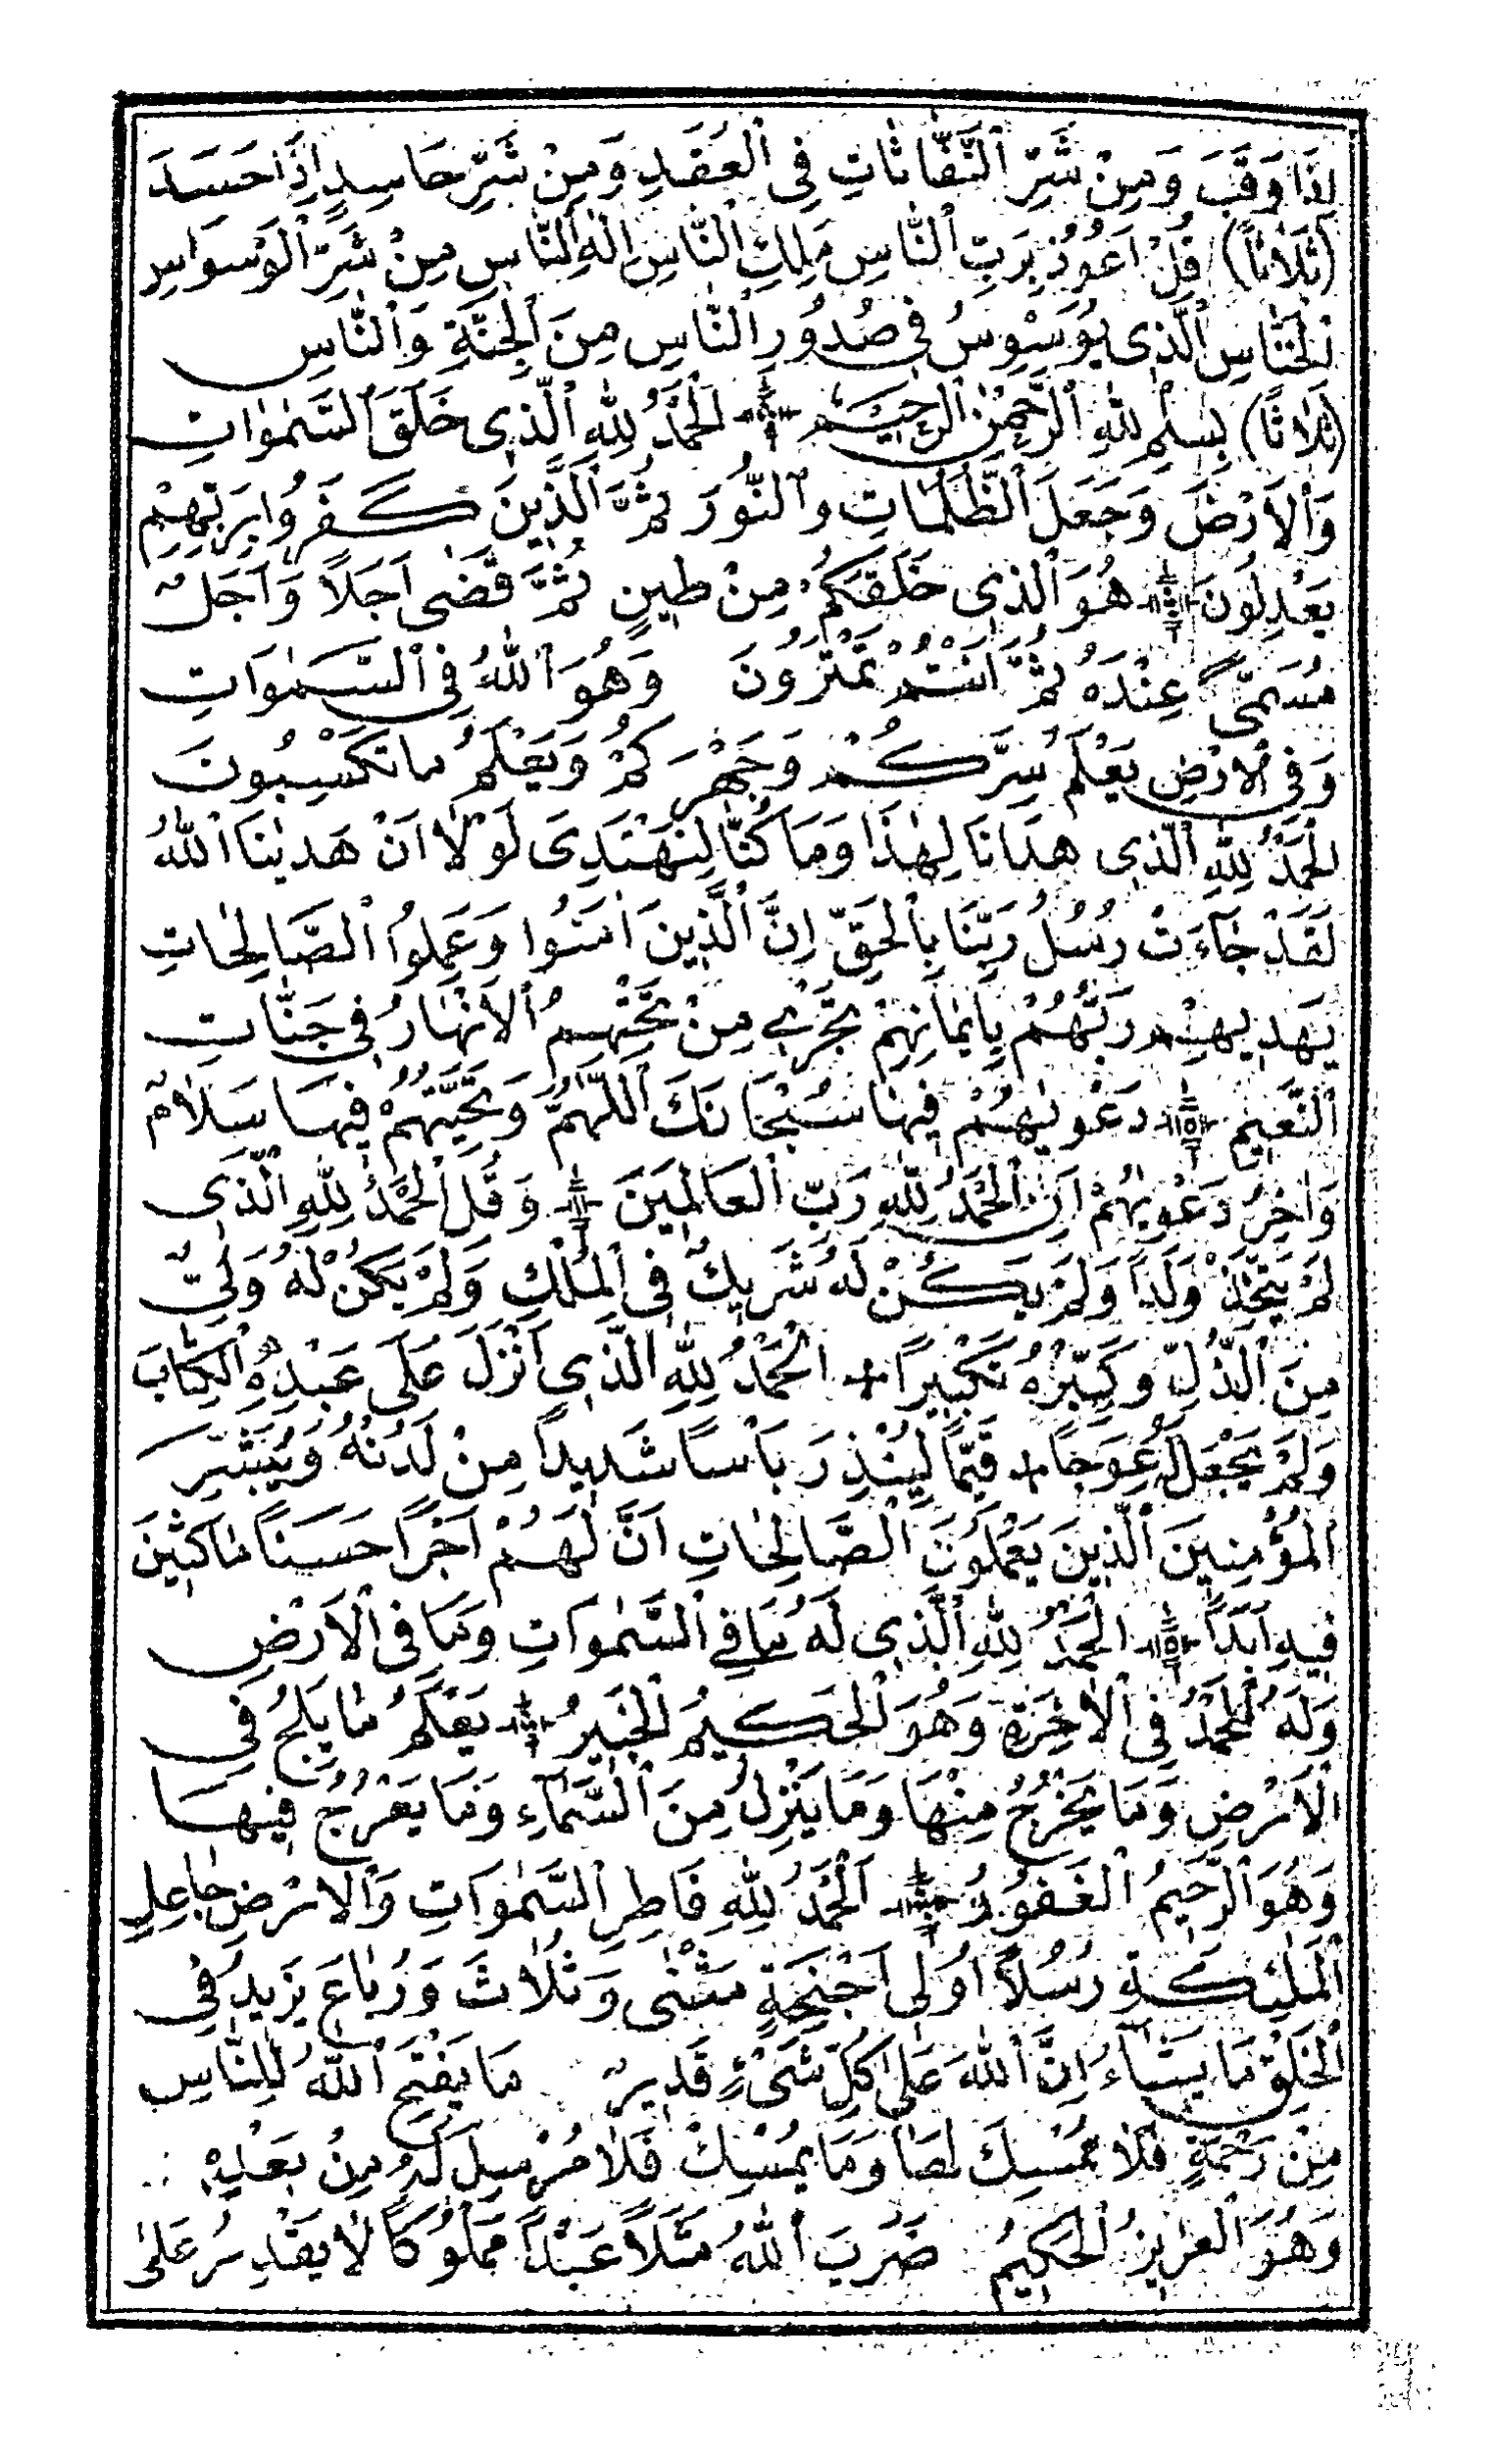 اِذَا وَقَبَ وَمِنْ شَرِّ ٱلنَّفَّاثَاتِ فِى ٱلْعُقَدِ وَمِنْ شَرِّ حَاسِدٍ اِذَا حَسَدَ
(ثَلَاثاً) قُلْ اَعُوذُ بِرَبِّ ٱلنَّاسِ مَلِكِ ٱلنَّاسِ اِلٰهِ ٱلنَّاسِ مِنْ شَرِّ ٱلْوَسْوَاسِ
ٱلْخَنَّاسِ ٱلَّذِى يُوَسْوِسُ فِى صُدُورِ ٱلنَّاسِ مِنَ ٱلْجِنَّةِ وَٱلنَّاسِ
(ثَلَاثاً) بِسْمِ ٱللّٰهِ ٱلرَّحْمٰنِ ٱلرَّحِيمِ ۞ اَلْحَمْدُ لِلّٰهِ ٱلَّذِى خَلَقَ ٱلسَّمٰوَاتِ
وَٱلْاَرْضَ وَجَعَلَ ٱلظُّلُمَاتِ وَٱلنُّورَ ثُمَّ ٱلَّذِينَ كَفَرُوا بِرَبِّهِمْ
يَعْدِلُونَ ۞ هُوَ ٱلَّذِى خَلَقَكُمْ مِنْ طِينٍ ثُمَّ قَضٰى اَجَلاً وَاَجَلٌ
مُسَمًّى عِنْدَهُ ثُمَّ اَنْتُمْ تَمْتَرُونَ وَهُوَ ٱللّٰهُ فِى ٱلسَّمٰوَاتِ
وَفِى ٱلْاَرْضِ يَعْلَمُ سِرَّكُمْ وَجَهْرَكُمْ وَيَعْلَمُ مَا تَكْسِبُونَ
اَلْحَمْدُ لِلّٰهِ ٱلَّذِى هَدَانَا لِهٰذَا وَمَا كُنَّا لِنَهْتَدِىَ لَوْلَا اَنْ هَدٰينَا ٱللّٰهُ
لَقَدْ جَآءَتْ رُسُلُ رَبِّنَا بِٱلْحَقِّ اِنَّ ٱلَّذِينَ اٰمَنُوا وَعَمِلُوا ٱلصَّالِحَاتِ
يَهْدِيهِمْ رَبُّهُمْ بِاِيمَانِهِمْ تَجْرِى مِنْ تَحْتِهِمُ ٱلْاَنْهَارُ فِى جَنَّاتِ
ٱلنَّعِيمِ ۞ دَعْوٰيهُمْ فِيهَا سُبْحَانَكَ ٱللّٰهُمَّ وَتَحِيَّتُهُمْ فِيهَا سَلَامٌ
وَاٰخِرُ دَعْوٰيهُمْ اَنِ ٱلْحَمْدُ لِلّٰهِ رَبِّ ٱلْعَالَمِينَ ۞ وَقُلِ ٱلْحَمْدُ لِلّٰهِ ٱلَّذِى
لَمْ يَتَّخِذْ وَلَداً وَلَمْ يَكُنْ لَهُ شَرِيكٌ فِى ٱلْمُلْكِ وَلَمْ يَكُنْ لَهُ وَلِىٌّ
مِنَ ٱلذُّلِّ وَكَبِّرْهُ تَكْبِيراً + اَلْحَمْدُ لِلّٰهِ ٱلَّذِى اَنْزَلَ عَلٰى عَبْدِهِ ٱلْكِتَابَ
وَلَمْ يَجْعَلْ لَهُ عِوَجاً + قَيِّماً لِيُنْذِرَ بَاْساً شَدِيداً مِنْ لَدُنْهُ وَيُبَشِّرَ
ٱلْمُؤْمِنِينَ ٱلَّذِينَ يَعْمَلُونَ ٱلصَّالِحَاتِ اَنَّ لَهُمْ اَجْراً حَسَناً مَاكِثِينَ
فِيهِ اَبَداً ۞ اَلْحَمْدُ لِلّٰهِ ٱلَّذِى لَهُ مَا فِى ٱلسَّمٰوَاتِ وَمَا فِى ٱلْاَرْضِ
وَلَهُ ٱلْحَمْدُ فِى ٱلْاٰخِرَةِ وَهُوَ ٱلْحَكِيمُ ٱلْخَبِيرُ ۞ يَعْلَمُ مَا يَلِجُ فِى
ٱلْاَرْضِ وَمَا يَخْرُجُ مِنْهَا وَمَا يَنْزِلُ مِنَ ٱلسَّمَآءِ وَمَا يَعْرُجُ فِيهَا
وَهُوَ ٱلرَّحِيمُ ٱلْغَفُورُ ۞ اَلْحَمْدُ لِلّٰهِ فَاطِرِ ٱلسَّمٰوَاتِ وَٱلْاَرْضِ جَاعِلِ
ٱلْمَلٰئِكَةِ رُسُلاً اُولِى اَجْنِحَةٍ مَثْنٰى وَثُلَاثَ وَرُبَاعَ يَزِيدُ فِى
ٱلْخَلْقِ مَا يَشَآءُ اِنَّ ٱللّٰهَ عَلٰى كُلِّ شَىْءٍ قَدِيرٌ مَا يَفْتَحِ ٱللّٰهُ لِلنَّاسِ
مِنْ رَحْمَةٍ فَلَا مُمْسِكَ لَهَا وَمَا يُمْسِكْ فَلَا مُرْسِلَ لَهُ مِنْ بَعْدِهِ
وَهُوَ ٱلْعَزِيزُ ٱلْحَكِيمُ ضَرَبَ ٱللّٰهُ مَثَلاً عَبْداً مَمْلُوكاً لَا يَقْدِرُ عَلٰى